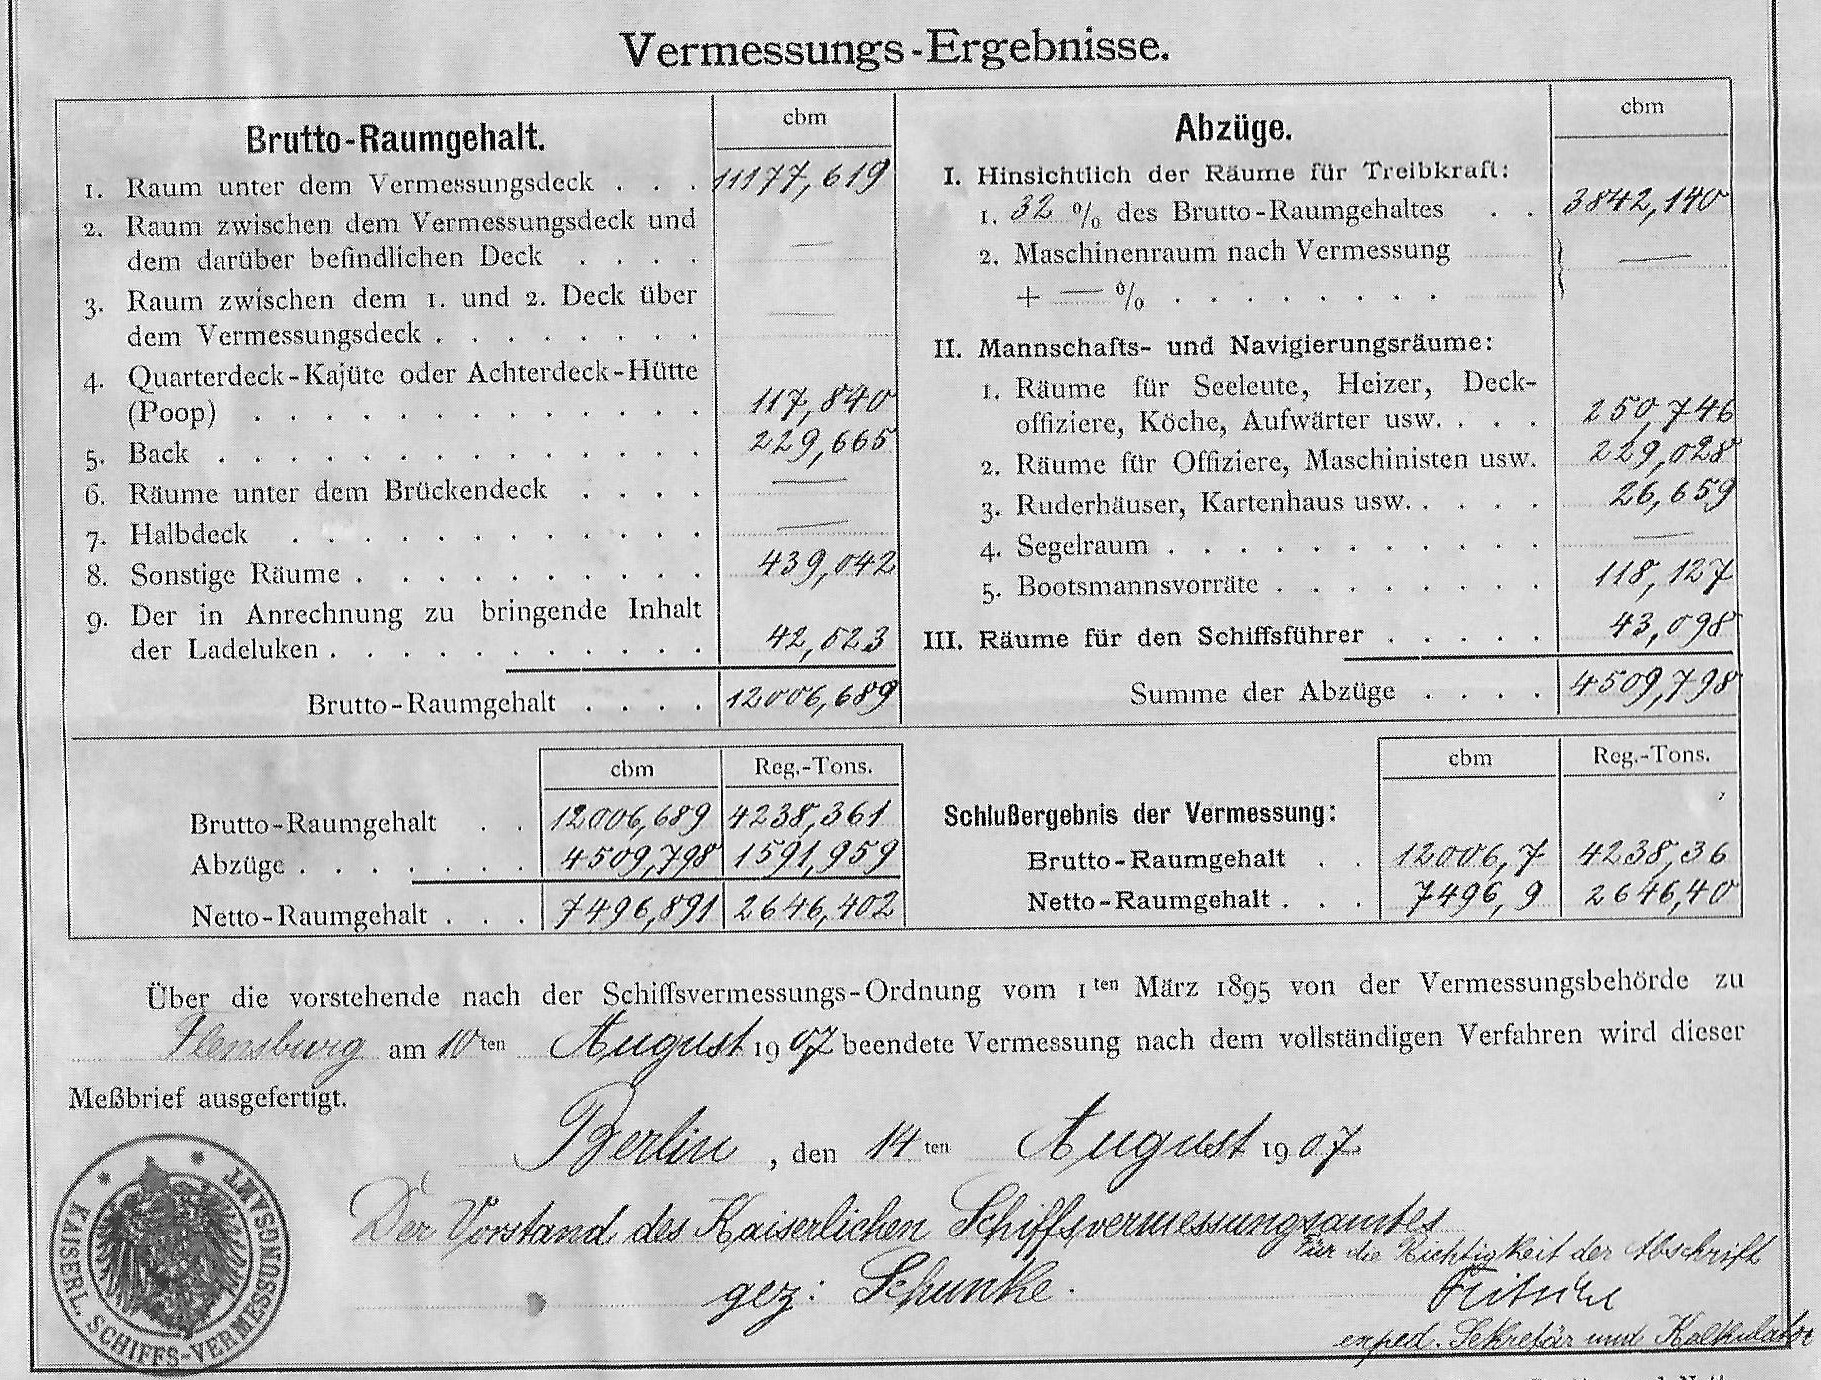 Vermessungs-Ergebnisse.
Brutto-Raumgehalt.
cbm
1. Raum unter dem Vermessungsdeck . . . 11177,619
2. Raum zwischen dem Vermessungsdeck und
dem darüber befindlichen Deck . . . . —
3. Raum zwischen dem 1. und 2. Deck über
dem Vermessungsdeck . . . . . . . —
4. Quarterdeck-Kajüte oder Achterdeck-Hütte
(Poop) . . . . . . . . . . . . 117,840
5. Back . . . . . . . . . . . . . 229,665
6. Räume unter dem Brückendeck . . . . —
7. Halbdeck . . . . . . . . . . . —
8. Sonstige Räume . . . . . . . . . 439,042
9. Der in Anrechnung zu bringende Inhalt
der Ladeluken . . . . . . . . . . 42,523
Brutto-Raumgehalt . . . . 12006,689
Abzüge.
cbm
I. Hinsichtlich der Räume für Treibkraft:
1. 32 % des Brutto-Raumgehaltes . . 3842,140
2. Maschinenraum nach Vermessung
+ — % . . . . . . . . . —
II. Mannschafts- und Navigierungsräume:
1. Räume für Seeleute, Heizer, Deck-
offiziere, Köche, Aufwärter usw. . . . 250,746
2. Räume für Offiziere, Maschinisten usw. 229,028
3. Ruderhäuser, Kartenhaus usw. . . . . 26,659
4. Segelraum . . . . . . . . . . —
5. Bootsmannsvorräte . . . . . . . 118,127
III. Räume für den Schiffsführer . . . . . 43,098
Summe der Abzüge . . . . 4509,798
cbm Reg.-Tons.
Brutto-Raumgehalt . . 12006,689 4238,361
Abzüge . . . . . . . 4509,798 1591,959
Netto-Raumgehalt . . . 7496,891 2646,402
cbm Reg.-Tons.
Schlußergebnis der Vermessung:
Brutto-Raumgehalt . . 12006,7 4238,36
Netto-Raumgehalt . . . 7496,9 2646,40
Über die vorstehende nach der Schiffsvermessungs-Ordnung vom 1ten März 1895 von der Vermessungsbehörde zu
Flensburg am 10ten August 1907 beendete Vermessung nach dem vollständigen Verfahren wird dieser
Meßbrief ausgefertigt.
Berlin, den 14ten August 1907.
Der Vorstand des Kaiserlichen Schiffsvermessungsamtes
gez: Schunke.
Für die Richtigkeit der Abschrift
exped. Sekretär und Kalkulator
KAISERL. SCHIFFS-VERMESSUNGSAMT